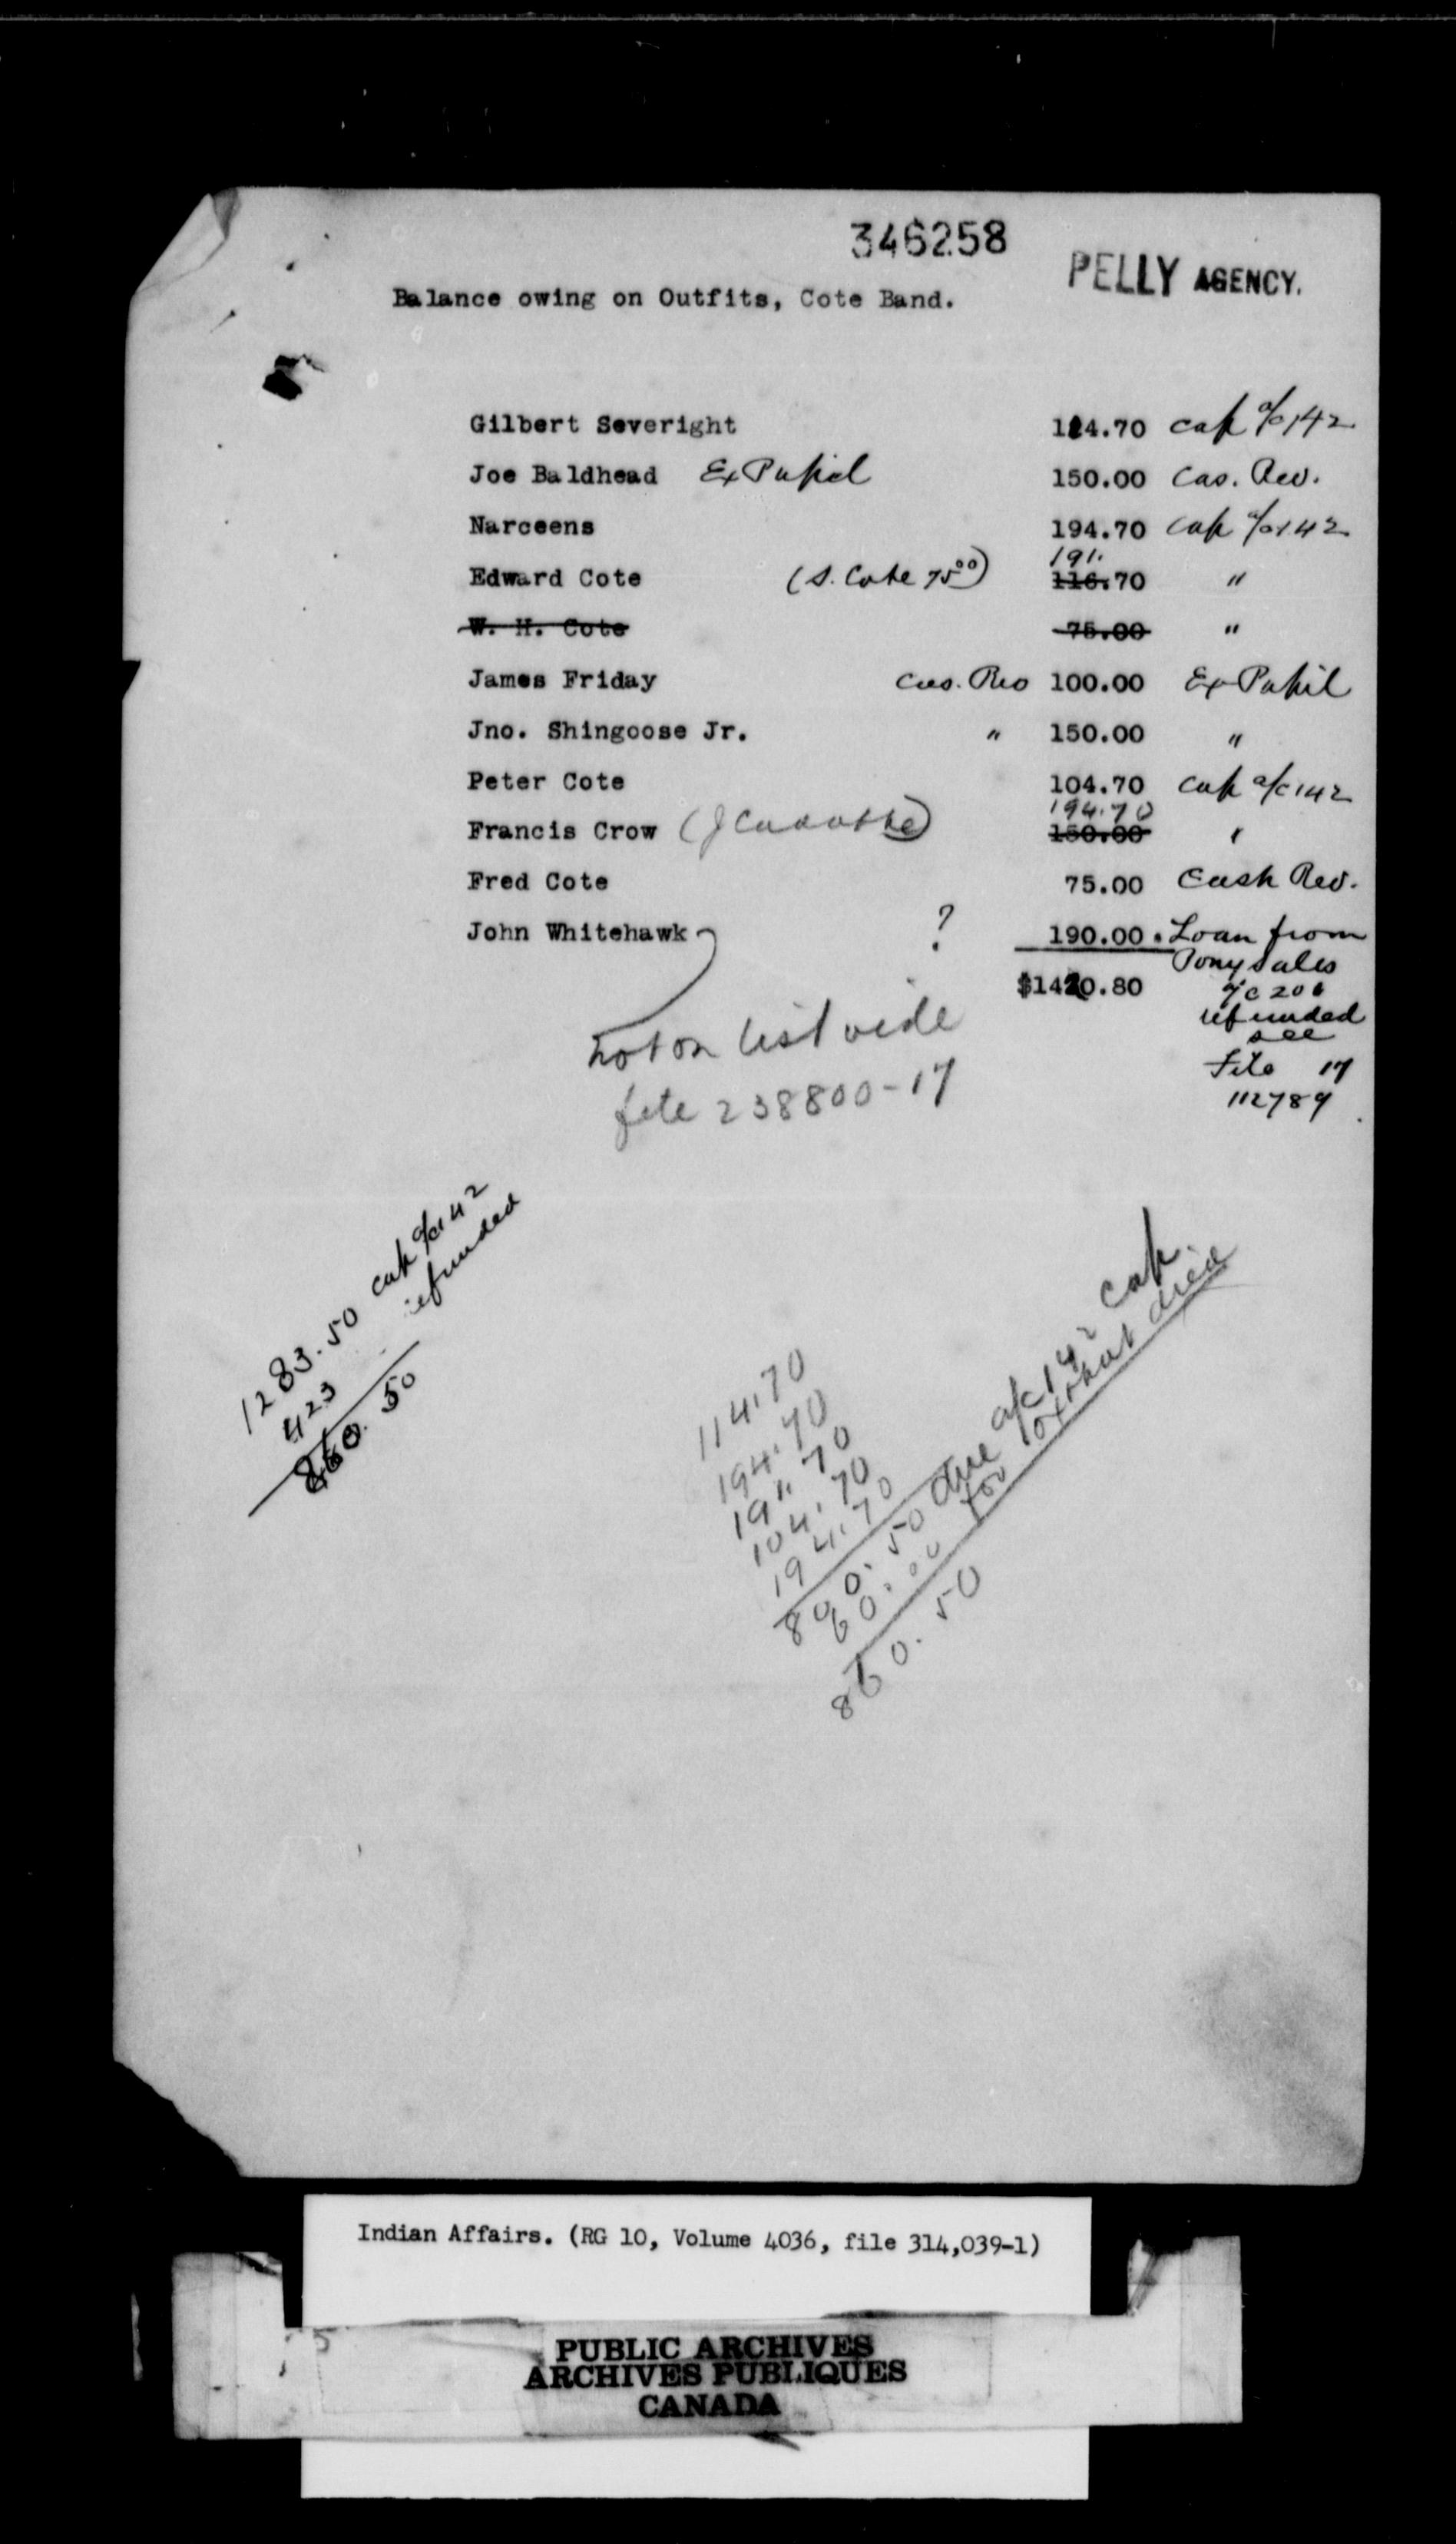 346258
PELLY AGENCY.
Balance owing on Outfits, Cote Band.
Gilbert Severight 124.70 Cap a/c 142
Joe Baldhead Ex Pupil 150.00 Cas. Rev.
Narceens 194.70 Cap a/c 142
191.
Edward Cote (S. Cote 75.00) 116.70 "
W. H. Cote 75.00 "
James Friday Cas. Rev 100.00 Ex Pupil
Jno. Shingoose Jr. " 150.00 "
Peter Cote 104.70 Cap a/c 142
194.70
Francis Crow 150.00 "
Fred Cote 75.00 Cash Rev.
John Whitehawk ? 190.00 Loan from
Pony sales
$1420.80 a/c 206
refunded
see
File 17
112789
not on list vide
file 238800-17
1283.50 Cap a/c 142
refunded
423
860.50
114.70
194.70
191.70
104.70
194.70
800.50 due a/c 142 Cap.
60.00 for ox that died
860.50
Indian Affairs. (RG 10, Volume 4036, file 314,039-1)
PUBLIC ARCHIVES
ARCHIVES PUBLIQUES
CANADA